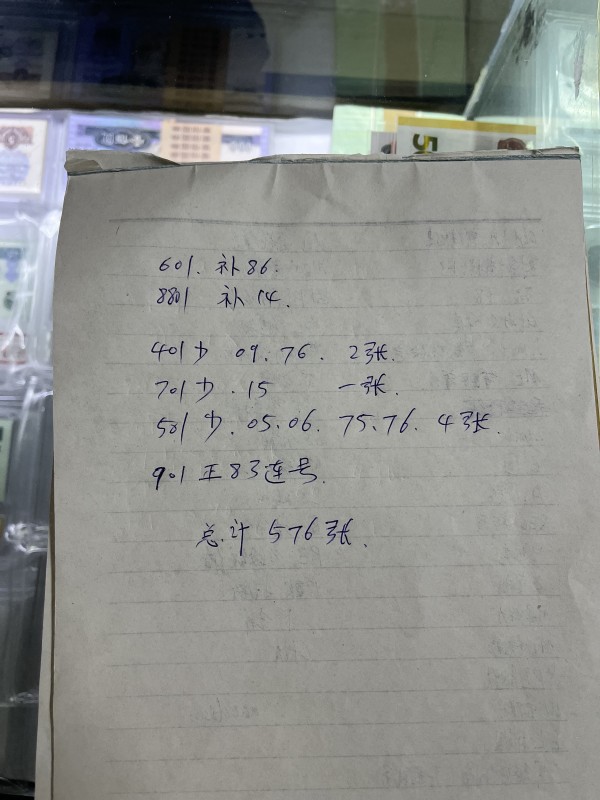 5
601. 补86.
8801 补14.
401少 09.76. 2张.
701少.15 一张.
501少.05.06. 75.76. 4张.
901正83连号.
总计576张.